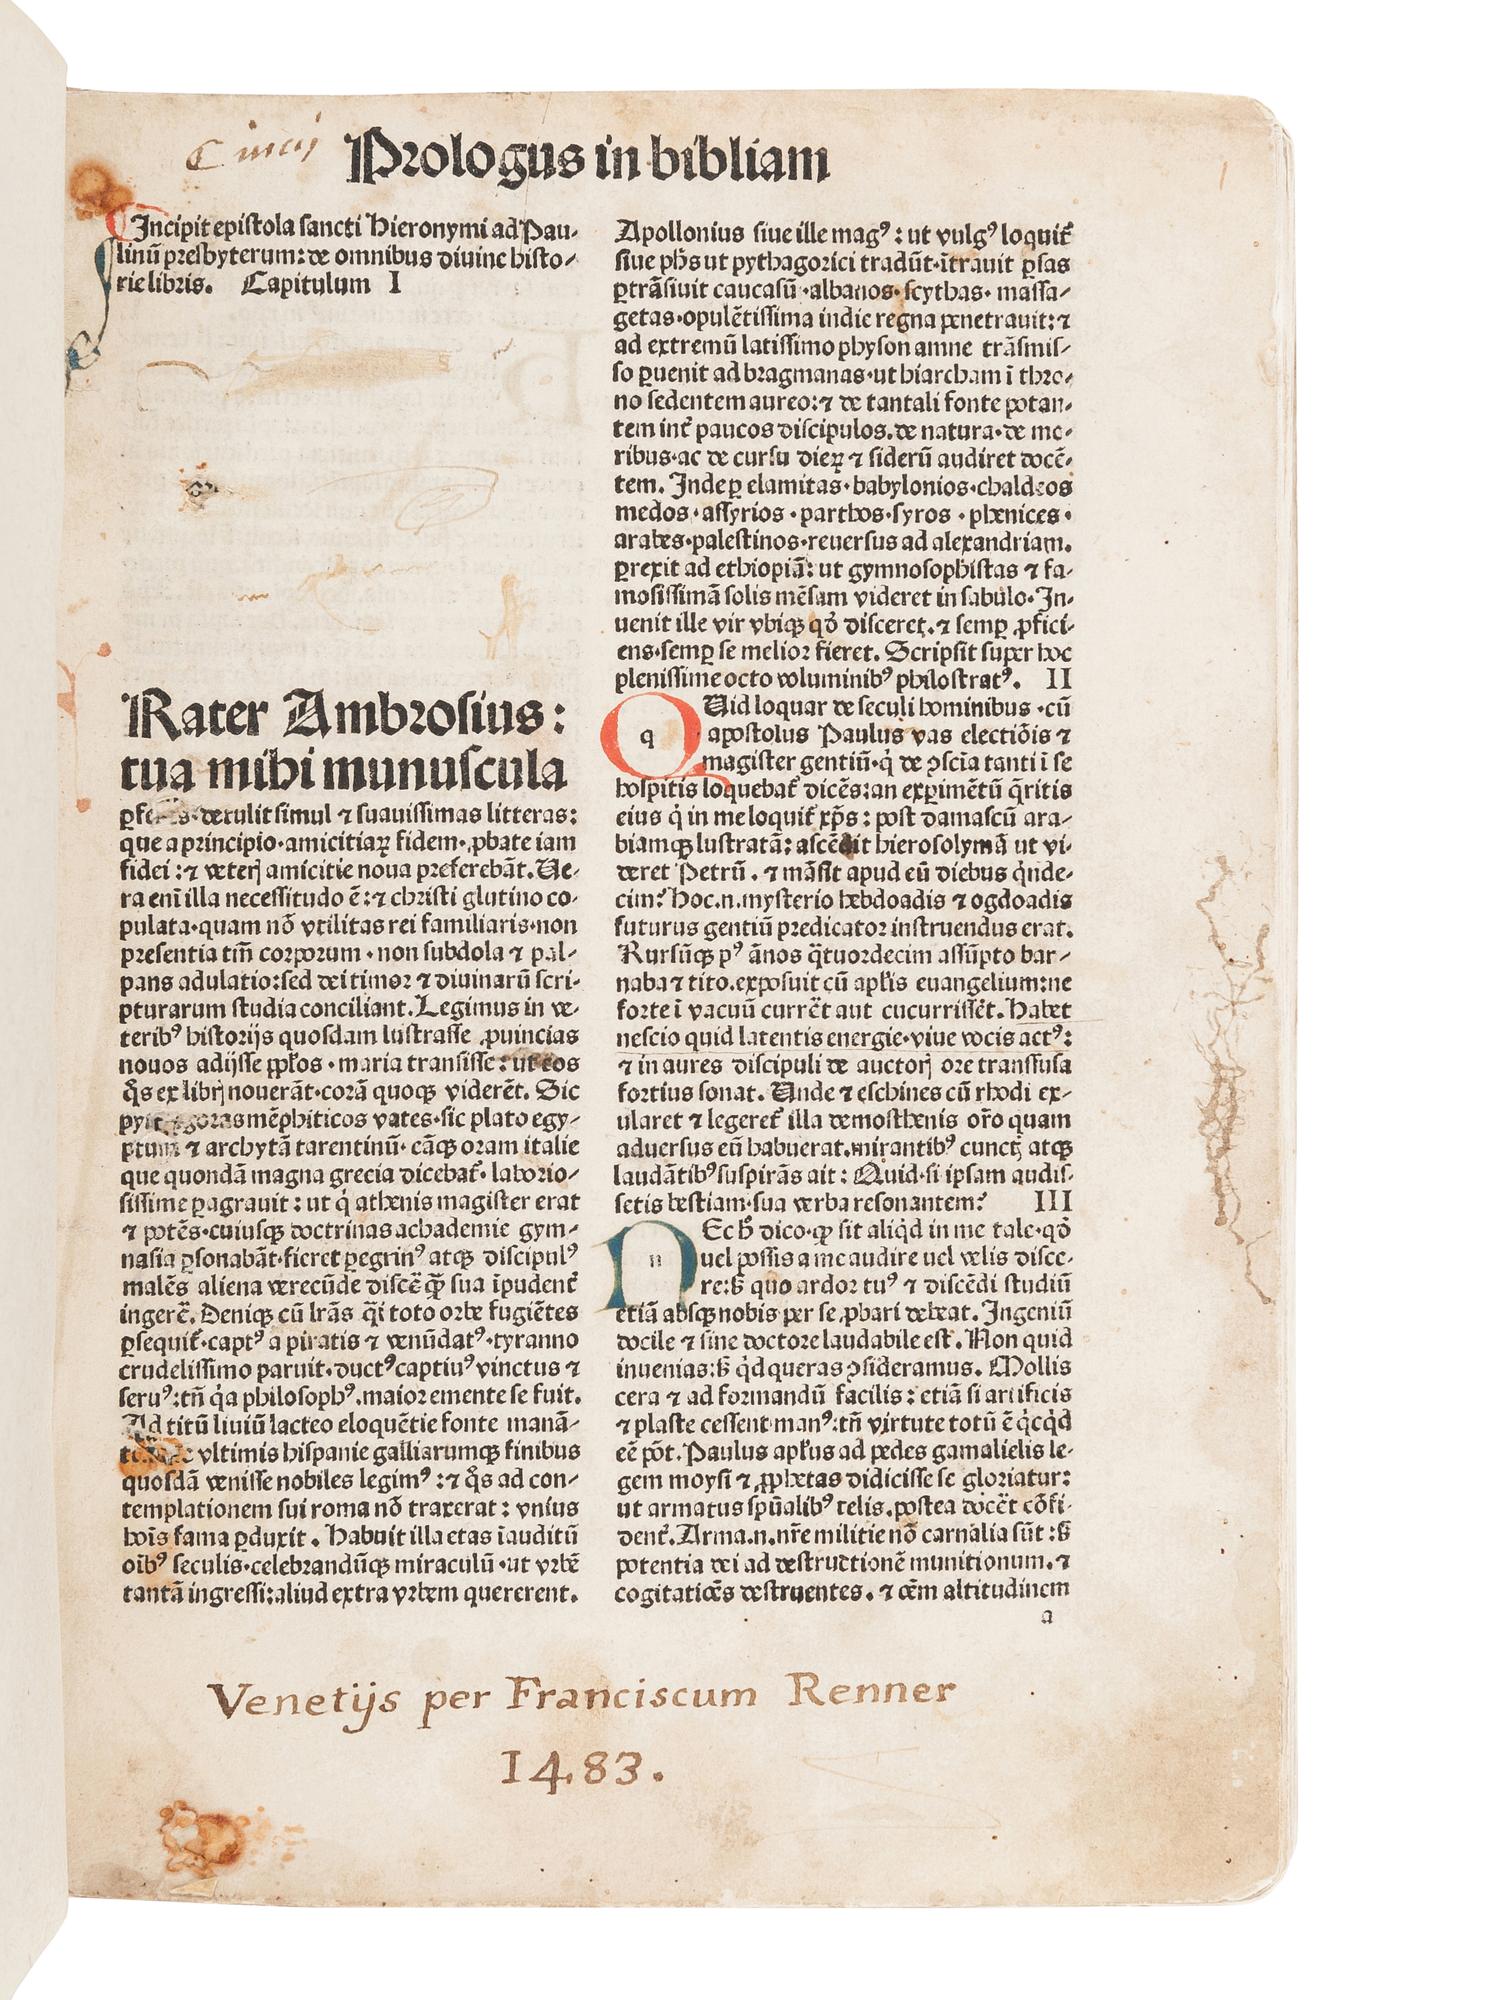 Prologus in bibliam
Incipit epistola sancti Hieronymi ad Pau-
linū presbyterum: de omnibus diuine histo-
rie libris. Capitulum I
Rater Ambrosius:
tua mihi munuscula
detulit simul ⁊ suauissimas litteras:
que a principio·amicitiaꝝ fidem·ꝓbate iam
fidei: ⁊ veterꝭ amicitie noua preferebāt. Ue-
ra eni illa necessitudo ē: ⁊ christi glutino co-
pulata·quam nō vtilitas rei familiaris·non
presentia tm̄ corporum·non subdola ⁊ pal-
pans adulatio: sed dei timor ⁊ diuinarū scri-
pturarum studia conciliant. Legimus in ve-
teribꝰ historijs quosdam lustrasse ꝓuincias
nouos adijsse ppl̄os·maria transisse: ut eos
q̄s ex librꝭ nouerāt·corā quoqꝫ viderēt. Sic
mēphiticos vates·sic plato egy-
⁊ archytā tarentinū·eāqꝫ oram italie
que quondā magna grecia dicebat̄·laborio-
sissime ꝑagrauit: ut q̇ athenis magister erat
⁊ potēs·cuiusqꝫ doctrinas achademie gym-
nasia ꝑsonabāt·fieret ꝑegrinꝰ atqꝫ discipulꝰ
malēs aliena verecūde discē q̄ꝫ sua īpudent̄
ingerē. Deniqꝫ cū lrās q̄i toto orbe fugiētes
ꝑsequit̄·captꝰ a piratis ⁊ venūdatꝰ·tyranno
crudelissimo paruit·ductꝰ captiuꝰ vinctus ⁊
seruꝰ: tn̄ q̇a philosophꝰ·maior emente se fuit.
Ad titū liuiū lacteo eloquētie fonte manā-
vltimis hispanie galliarumqꝫ finibus
quosdā venisse nobiles legimꝰ: ⁊ q̄s ad con-
templationem sui roma nō traxerat: vnius
hoīs fama ꝑduxit. Habuit illa etas īauditū
oībꝰ seculis·celebrandūqꝫ miraculū·ut vrbē
tantā ingressi: aliud extra vrbem quererent.
Apollonius siue ille magꝰ: ut vulgꝰ loquit̄
siue phs ut pythagorici tradūt·ītrauit ꝑsas
ꝑtrāsiuit caucasū·albanos·scythas·massa-
getas·opulētissima indie regna penetrauit: ⁊
ad extremū latissimo physon amne trāsmis-
so ꝑuenit ad bragmanas·ut hiarcham ī thro-
no sedentem aureo: ⁊ de tantali fonte potan-
tem int̄ paucos discipulos. de natura·de mo-
ribus·ac de cursu dieꝝ ⁊ siderū audiret docē-
tem. Inde ꝑ elamitas·babylonios·chaldeos
medos·assyrios·parthos·syros·phenices·
arabes·palestinos·reuersus ad alexandriam.
ꝑrexit ad ethiopiā: ut gymnosophistas ⁊ fa-
mosissimā solis mēsam videret in sabulo·In-
uenit ille vir vbiqꝫ qō disceret. ⁊ semꝑ ꝓfici-
ens·semꝑ se melior fieret. Scripsit super hoc
plenissime octo voluminibꝰ philostratꝰ. II
q Uid loquar de seculi hominibus·cū
apostolus Paulus vas electiōis ⁊
magister gentiū·q̇ de ꝯscīa tanti ī se
hospitis loquebat̄ dicēs: an experimētū q̄ritis
eius q̇ in me loquit̄ xp̄s: post damascū ara-
biamqꝫ lustratā: ascēdit hierosolymā ut vi-
deret Petrū. ⁊ māsit apud eū diebus q̇nde-
cim? Hoc.n.mysterio hebdoadis ⁊ ogdoadis
futurus gentiū predicator instruendus erat.
Rursūqꝫ pꝰ ānos q̄tuordecim assūpto bar-
naba ⁊ tito.exposuit cū apl̄is euangelium: ne
forte ī vacuū currēt aut cucurrissēt. Habet
nescio quid latentis energie·viue vocis actꝰ:
⁊ in aures discipuli de auctorꝭ ore transfusa
fortius sonat. Unde ⁊ eschines cū rhodi ex-
ularet ⁊ legeret̄ illa demosthenis or̄o quam
aduersus eū habuerat·mirantibꝰ cunctꝭ atqꝫ
laudātibꝰ suspirās ait: Quid·si ipsam audis-
setis bestiam·sua verba resonantem? III
n Ec h̄ dico·ꝙ sit aliq̇d in me tale·qō
uel possis a me audire uel velis disce-
re: ꞩ quo ardor tuꝰ ⁊ discēdi studiū
etiā absqꝫ nobis per se ꝓbari debeat. Ingeniū
docile ⁊ sine doctore laudabile est. Non quid
inuenias: ꞩ q̇d queras ꝯsideramus. Mollis
cera ⁊ ad formandū facilis: etiā si artificis
⁊ plaste cessent manꝰ: tn̄ virtute totū ē q̇cq̇d
eē pōt. Paulus apl̄us ad pedes gamalielis le-
gem moysi ⁊ ꝓphetas didicisse se gloriatur:
ut armatus spūalibꝰ telis. postea docēt cōfi-
dent̄. Arma.n.nr̄e militie nō carnalia sūt: ꞩ
potentia dei ad destructionē munitionum. ⁊
cogitatiōēs destruentes. ⁊ oēm altitudinem
a
Venetijs per Franciscum Renner
1483.